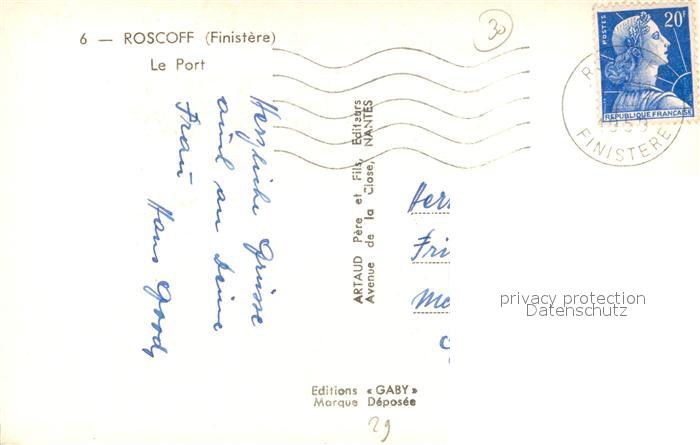 6 — ROSCOFF (Finistère)
Le Port
30
POSTES
20F
REPUBLIQUE FRANÇAISE
FINISTERE
Herzliche Grüsse
auch an Deine
Frau Hans Goody
ARTAUD Père et Fils, Editeurs
Avenue de la Close, NANTES
Herr
Fri
privacy protection
Datenschutz
Editions « GABY »
Marque Déposée
29